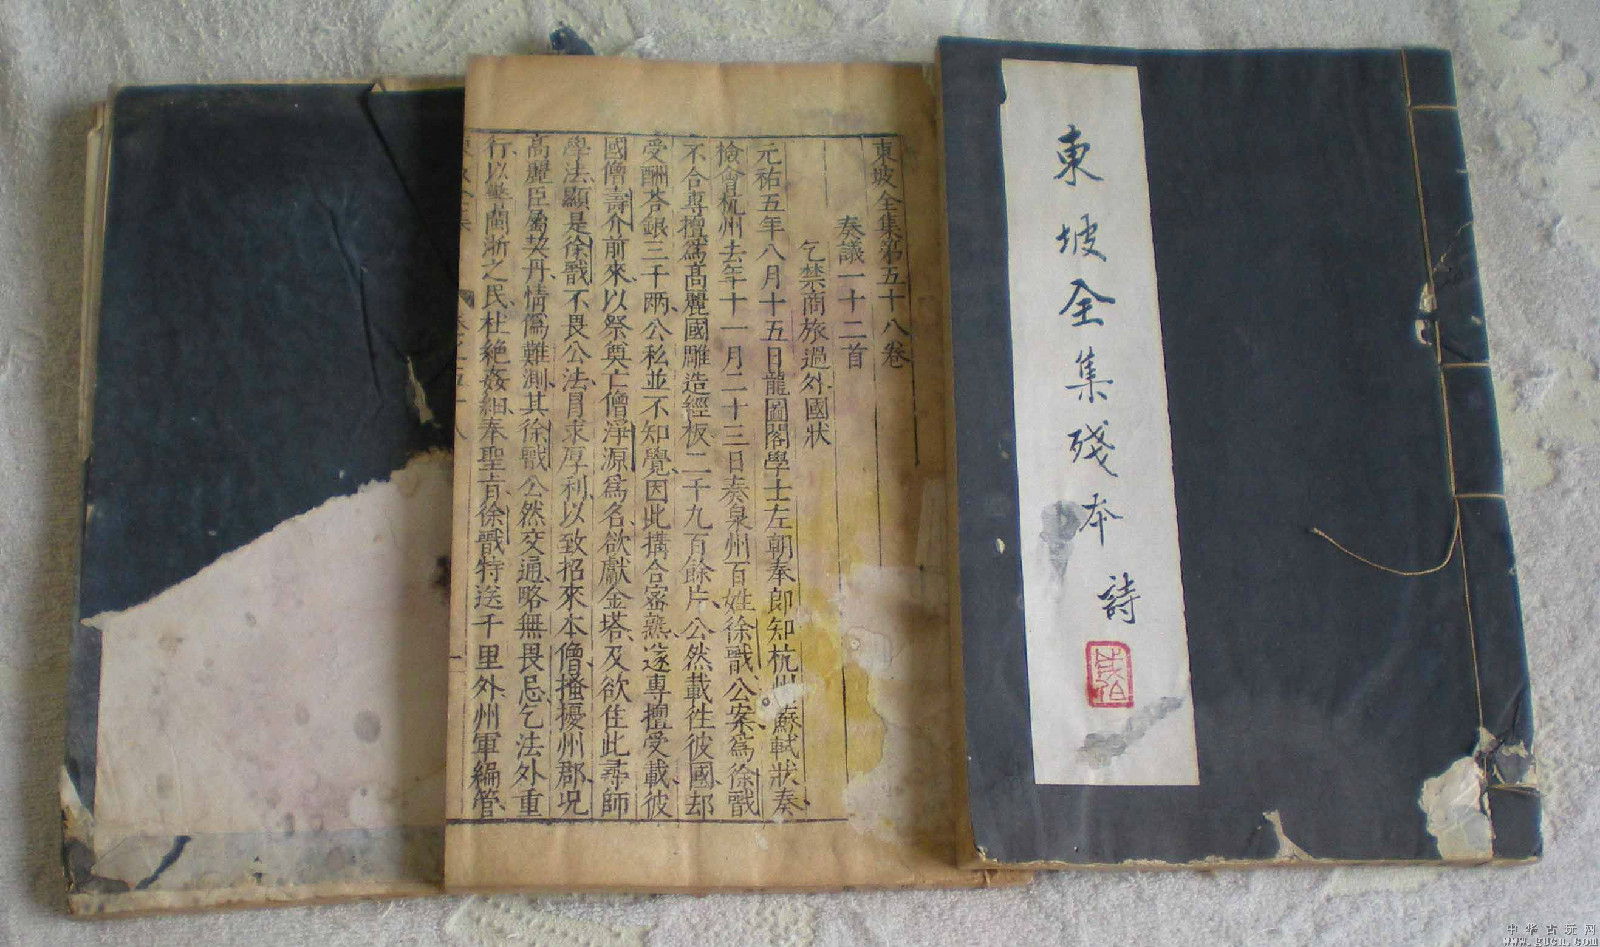 東坡全集殘本 詩
東坡全集第五十八卷
奏議一十二首
乞禁商旅過外國狀
元祐五年八月十五日龍圖閣學士左朝奉郎知杭州蘇軾狀奏
檢會杭州去年十一月二十三日奏泉州百姓徐戬公案為徐戬
不合專擅為高麗國雕造經板二千九百餘片公然載徃彼國却
受酬荅銀三千兩公私並不知覺因此搆合宻熟遂專擅受載彼
國僧壽介前來以祭奠亡僧淨源為名欲獻金塔及欲住此尋師
學法顯是徐戬不畏公法冒求厚利以致招來本僧搔擾州郡况
高麗臣屬契丹情偽難測其徐戬公然交通略無畏忌乞法外重
行以警閩浙之民杜絶姦細奉聖旨徐戬特送千里外州軍編管
中华古玩网
www.gucn.com